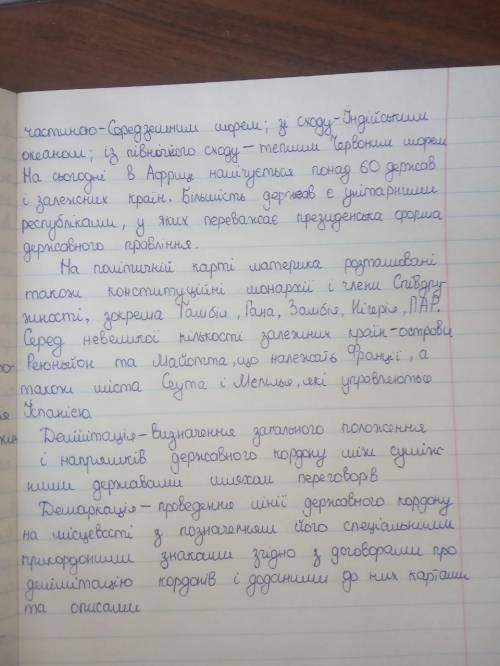 частиною-Середземним морем; зі сходу-Індійським
океаном; із північного сходу-теплим Червоним морем
На сьогодні в Африці налічується понад 60 держав
і залежних країн. Більшість держав є унітарними
республіками, у яких переважає президенська форма
державного правління.
На політичній карті материка розташовані
також конституційні монархії і члени Співдру-
жності, зокрема Гамбія, Гана, Замбія, Нігерія, ПАР.
Серед невеликої кількості залежних країн-острови
Реюньйон та Майотта, що належать Франції, а
також міста Сеута і Мелілья, які управляються
Іспанією
Делімітація-визначення загального положення
і напрямків державного кордону між суміж-
ними державами шляхом переговорів
Демаркація-проведення лінії державного кордону
на місцевості з позначенням його спеціальними
прикордоними знаками згідно з договорами про
делімітацію кордонів і доданими до них картами
та описами